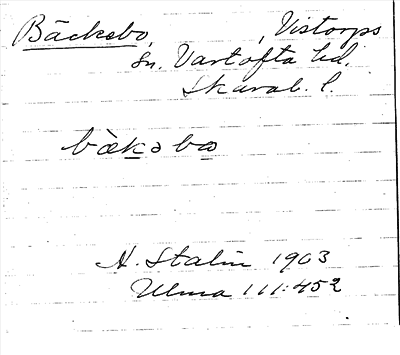 Bäckebo, , Vistorps
sn. Vartofta hd.
Skarab. l.
bàkəbo
N. Stalin 1903
Ulma 111:452